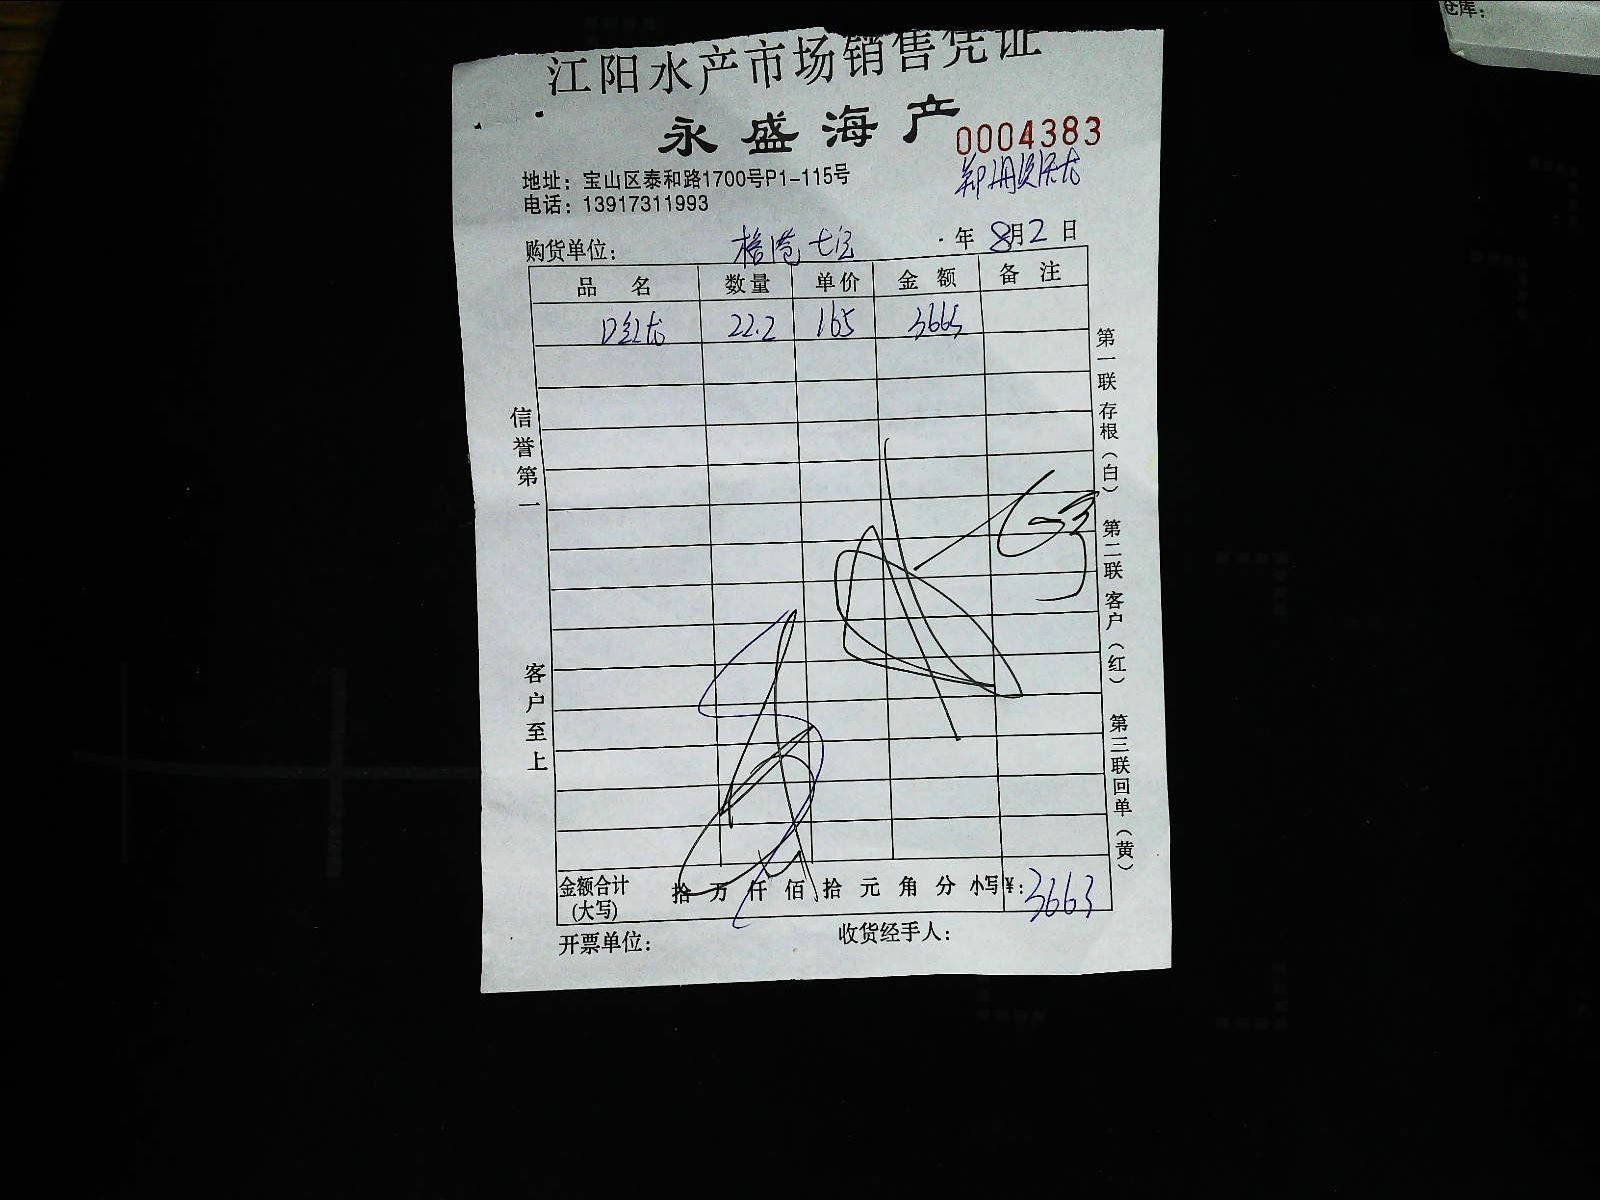 仓库:
江阳水产市场销售凭证
永盛海产
0004383
地址：宝山区泰和路1700号P1-115号
电话：13917311993
购货单位：
年 8月2日
品名 数量 单价 金额 备注
22.2 165 3663
信誉第一
客户至上
第一联存根（白） 第二联客户（红） 第三联回单（黄）
金额合计(大写) 拾 万 仟 佰 拾 元 角 分 小写¥：3663
开票单位： 收货经手人：